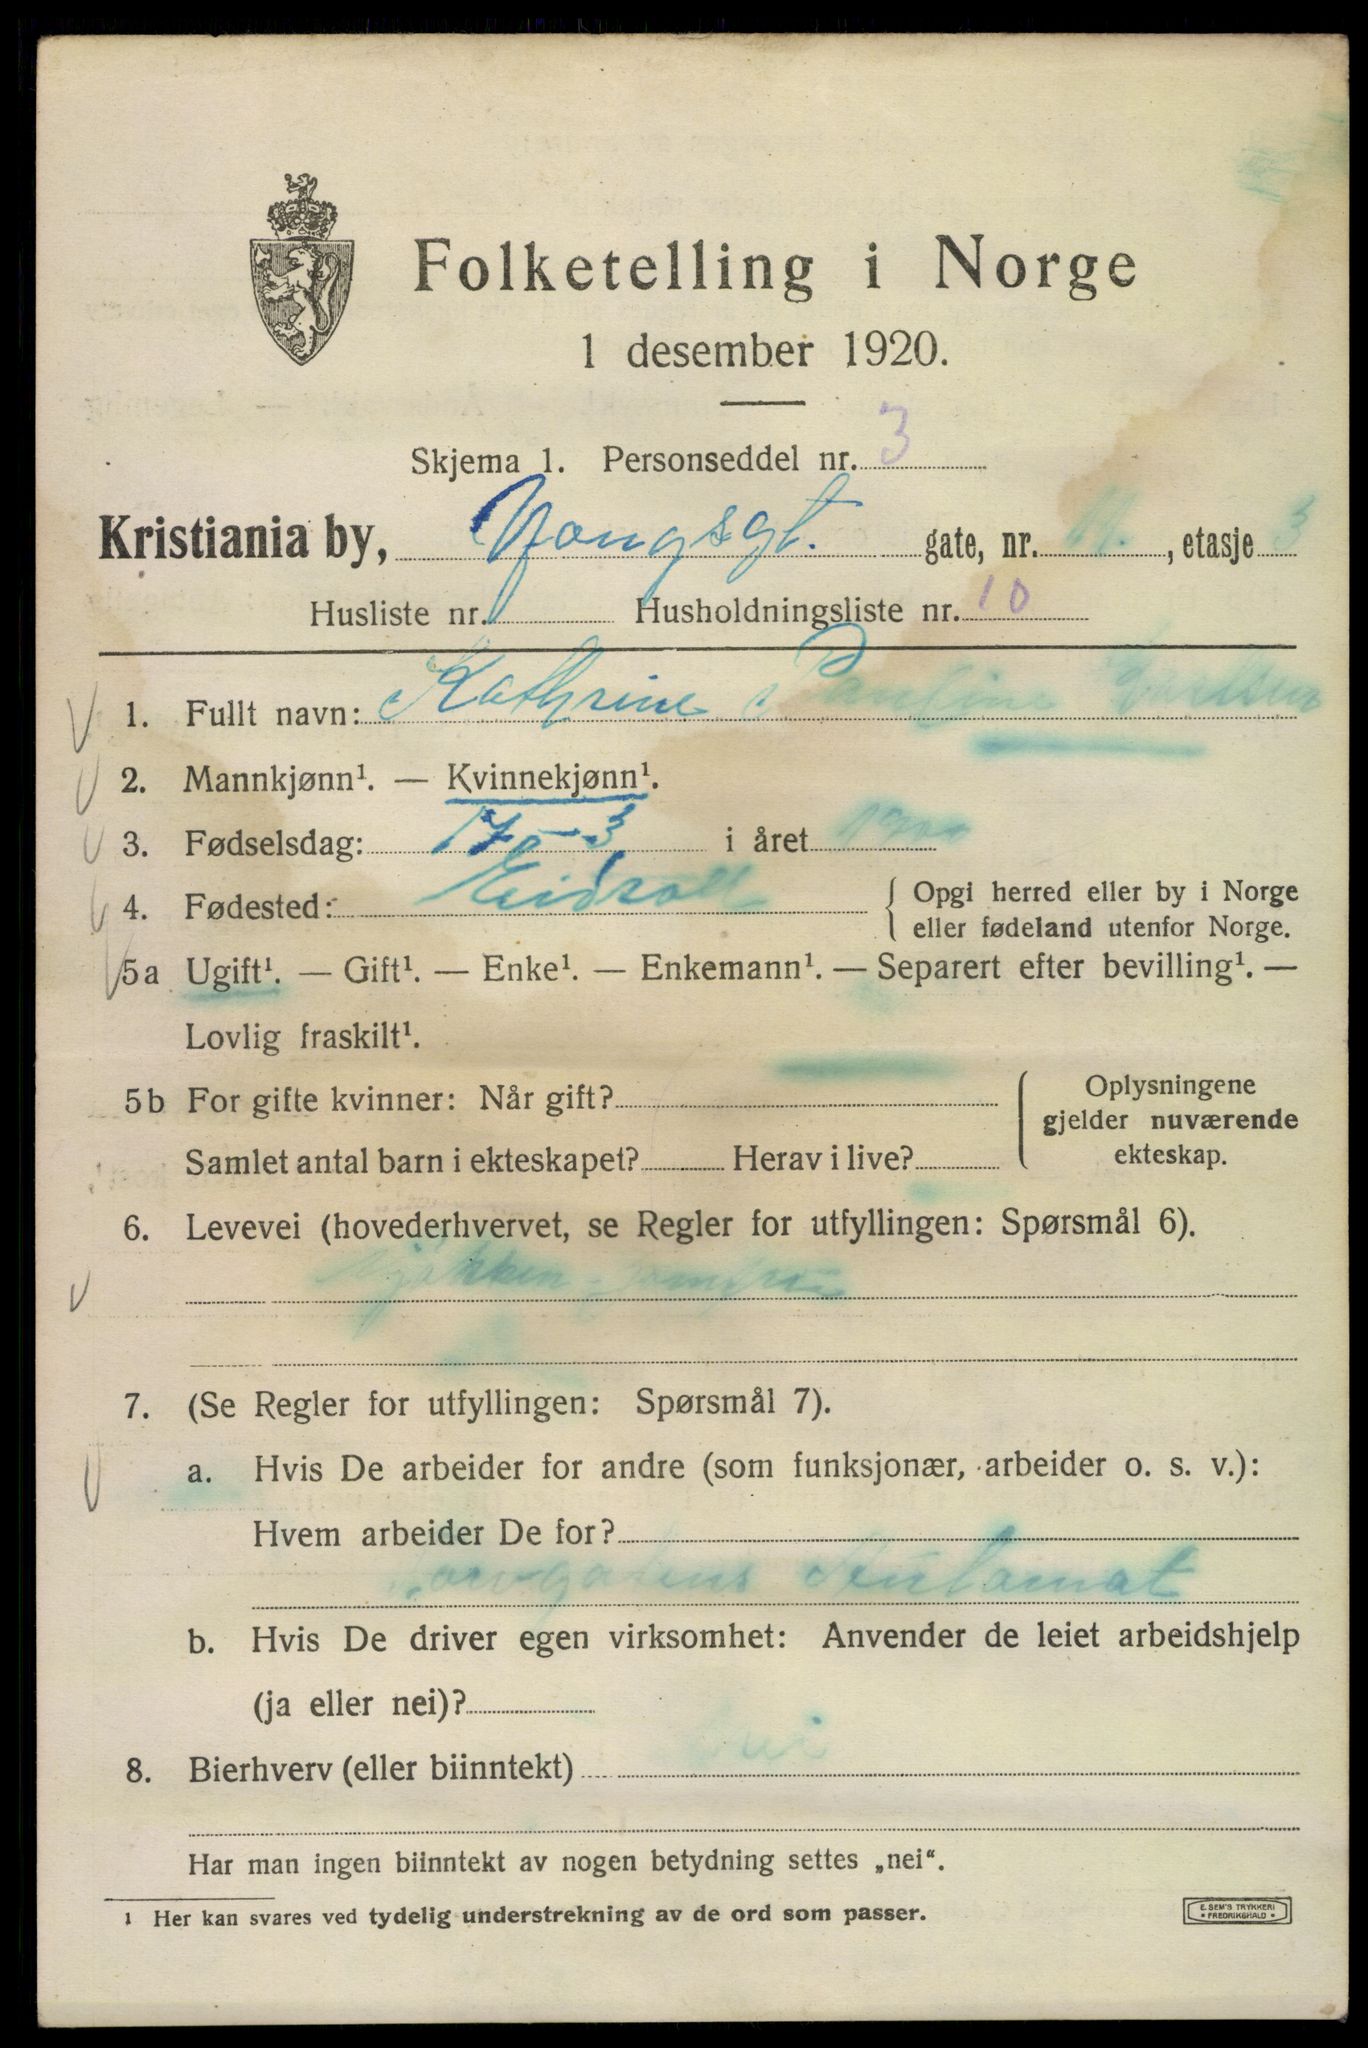 Folketelling i Norge
1 desember 1920.
Skjema 1. Personseddel nr. 3
Kristiania by, Yongsgt. gate, nr. 11., etasje 3
Husliste nr. Husholdningsliste nr. 10
1. Fullt navn: Kathrine Pauline
2. Mannkjønn¹. — Kvinnekjønn¹.
3. Fødselsdag: 17-3 i året 1900
4. Fødested: Eidsvoll { Opgi herred eller by i Norge
eller fødeland utenfor Norge.
5a Ugift¹. — Gift¹. — Enke¹. — Enkemann¹. — Separert efter bevilling¹. —
Lovlig fraskilt¹.
5b For gifte kvinner: Når gift?
Samlet antal barn i ekteskapet? Herav i live?
Oplysningene
gjelder nuværende
ekteskap.
6. Levevei (hovederhvervet, se Regler for utfyllingen: Spørsmål 6).
Kjøkken-jomfru
7. (Se Regler for utfyllingen: Spørsmål 7).
a. Hvis De arbeider for andre (som funksjonær, arbeider o. s. v.):
Hvem arbeider De for?
Torvgatens Automat
b. Hvis De driver egen virksomhet: Anvender de leiet arbeidshjelp
(ja eller nei)?
8. Bierhverv (eller biinntekt) nei
Har man ingen biinntekt av nogen betydning settes „nei“.
1 Her kan svares ved tydelig understrekning av de ord som passer.
E. SEM'S TRYKKERI
• FREDRIKSHALD •